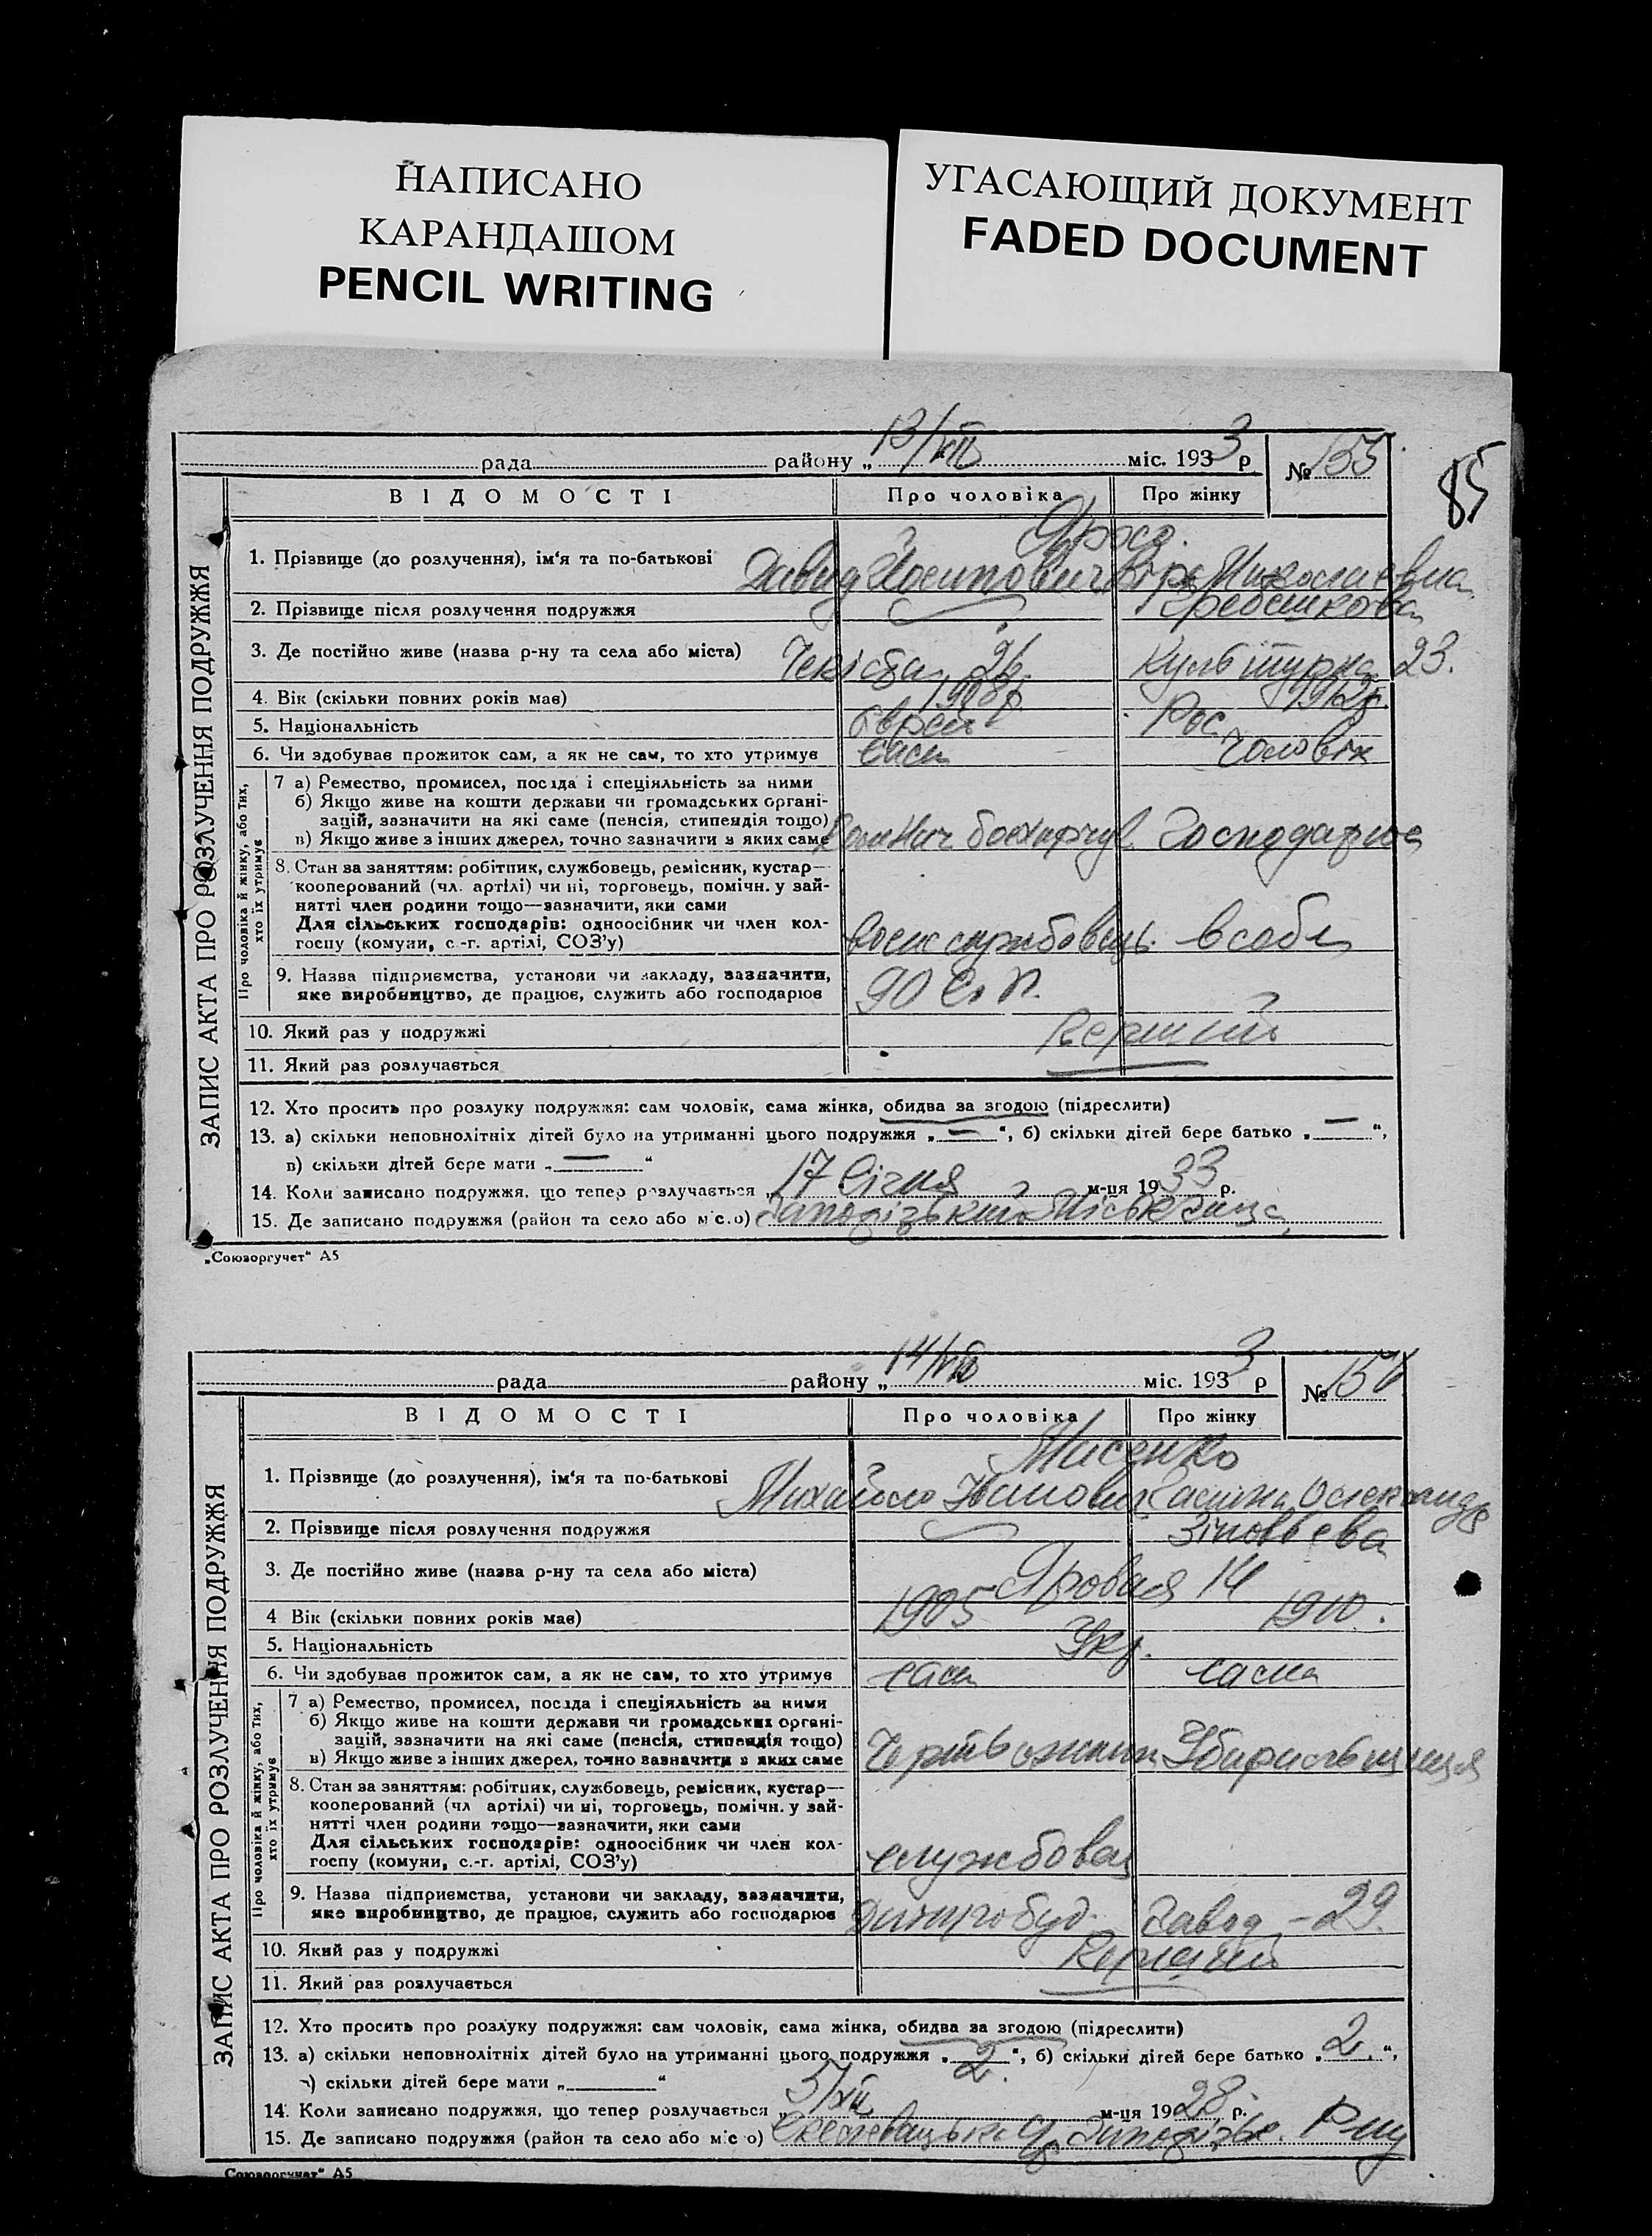 НАПИСАНО
КАРАНДАШОМ
PENCIL WRITING
УГАСАЮЩИЙ ДОКУМЕНТ
FADED DOCUMENT
85
ЗАПИС АКТА ПРО РОЗЛУЧЕННЯ ПОДРУЖЖЯ
рада районy „13/VII міс. 1933 р №155
ВІДОМОСТІ Про чоловіка Про жінку
1. Прізвище (до розлучення), ім'я та по-батькові
Давид Йосипович Віра Миколаевна
2. Прізвище після розлучення подружжя Гребешкова
3. Де постійно живе (назва р-ну та села або міста) Чекіста 26 Культурна 23.
4. Вік (скільки повних років має) 1908р. 1912р.
5. Національність Єврей Рос.
6. Чи здобував прожиток сам, а як не сам, то хто утримує сам чоловік
Про чоловіка й жінку, або тих, хто їх утримує
7 а) Ремество, промисел, посада і спеціяльність за ними
б) Якщо живе на кошти держави чи громадських органі-
зацій, зазначити на які саме (пенсія, стипендія тощо)
в) Якщо живе з інших джерел, точно зазначити з яких саме Господарює
8. Стан за заняттям: робітник, службовець, ремісник, кустар—
кооперований (чл. артілі) чи ні, торговець, помічн. у зай-
нятті член родини тощо—зазначити, яки сами
Для сільських господарів: одноосібник чи член кол-
госпу (комуни, с.-г. артілі, СОЗ'у) Воєнслужбовець. в собі
9. Назва підприємства, установи чи закладу, зазначити,
яке виробництво, де працює, служить або господарює 90 С. П.
10. Який раз у подружжі Перший
11. Який раз розлучається
12. Хто просить про розлуку подружжя: сам чоловік, сама жінка, обидва за згодою (підреслити)
13. а) скільки неповнолітніх дітей було на утриманні цього подружжя „—“, б) скільки дітей бере батько „—“,
в) скільки дітей бере мати „—“
14. Коли записано подружжя, що тепер розлучається „17 Січня м-ця 1933 р.
15. Де записано подружжя (район та село або місто) Запорізький
„Союзоргучет“ А5
ЗАПИС АКТА ПРО РОЗЛУЧЕННЯ ПОДРУЖЖЯ
рада району „14/VII міс. 1933 р №156
ВІДОМОСТІ Про чоловіка Про жінку
Мисенко
1. Прізвище (до розлучення), ім'я та по-батькові Михайло Іванович Галина Олександр
2. Прізвище після розлучення подружжя Зіновьева
3. Де постійно живе (назва р-ну та села або міста) Яровая 14
4 Вік (скільки повних років має) 1905 1910.
5. Національність Укр.
6. Чи здобував прожиток сам, а як не сам, то хто утримує сам сама
Про чоловіка й жінку, або тих, хто їх утримує
7 а) Ремество, промисел, посада і спеціяльність за ними
б) Якщо живе на кошти держави чи громадських органі-
зацій, зазначити на які саме (пенсія, стипендія тощо)
в) Якщо живе з інших джерел, точно зазначити з яких саме Чертьожник Убиральщиця
8. Стан за заняттям: робітник, службовець, ремісник, кустар—
кооперований (чл артілі) чи ні, торговець, помічн. у зай-
нятті член родини тощо—зазначити, яки сами
Для сільських господарів: одноосібник чи член кол-
госпу (комуни, с.-г. артілі, СОЗ'у) службовец
9. Назва підприємства, установи чи закладу, зазначити,
яке виробництво, де працює, служить або господарює Дніпробуд. Завод – 29.
10. Який раз у подружжі Перший
11. Який раз розлучається
12. Хто просить про розлуку подружжя: сам чоловік, сама жінка, обидва за згодою (підреслити)
13. а) скільки неповнолітніх дітей було на утриманні цього подружжя „2.“, б) скільки дітей бере батько „2.“,
в) скільки дітей бере мати „ “
14. Коли записано подружжя, що тепер розлучається „5/XII м-ця 1928. р.
15. Де записано подружжя (район та село або місто)
Союзоргучет“ А5